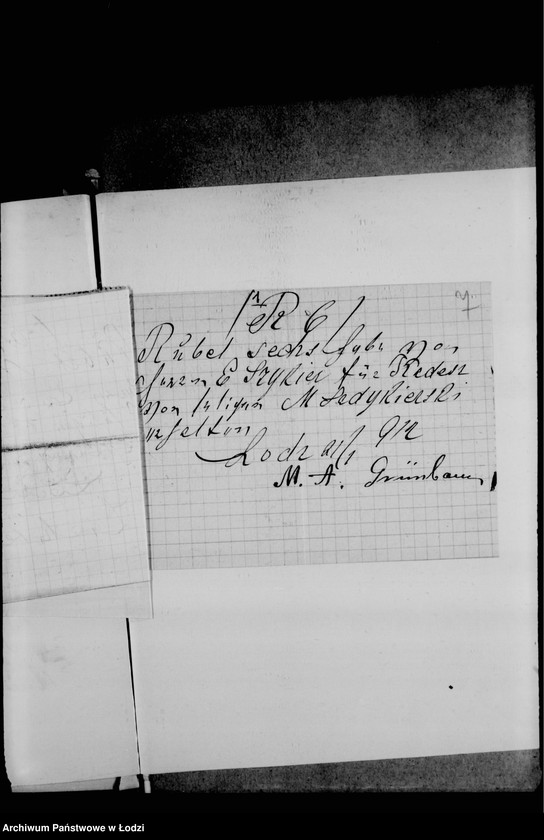 R 6
Rubel sechs habe von
Herrn E Szykier für
von seligen M Sedykierski
erhalten
Lodz 912
M. A. Grünbaum
Archiwum Państwowe w Łodzi